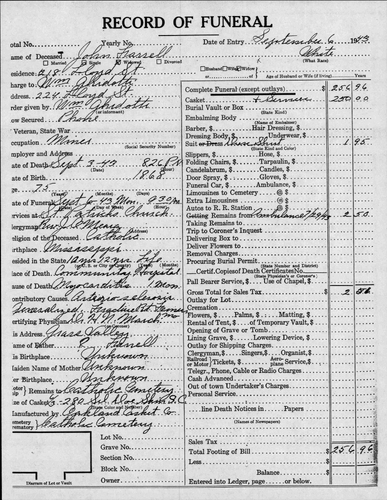 RECORD OF FUNERAL
Total No. Yearly No. Date of Entry September 6, 1943
Name of Deceased John Farrell White
Married Single Widowed Divorced (What Race)
Residence 218 Floyd St. Husband Wife Widow Age of Husband or Wife (if living) Years
Charge to Wm Ghidotti Complete Funeral (except outlays) $ 256 96
Address 224 Floyd Casket + Service 250 00
Order given by Wm Ghidotti Burial Vault or Box
(State Kind)
How Secured Phone Embalming Body
(Name of Embalmer)
Veteran, State War Barber, $ Hair Dressing, $
Occupation Miner Dressing Body, $ Underwear, $
(Social Security Number) Suit or Dress Shirt 1 95
Employer and Address (State Kind and Color)
Slippers, $ Hose, $
Date of Death Sept. 3-43 8:26 PM Folding Chairs, $ Tarpaulin, $
Date of Birth 1868 Candelabrum, $ Candles, $
Door Spray, $ Gloves, $
Age 75 Funeral Car, $ Ambulance, $
Date of Funeral Sept 6-43 Mon. 9:30 AM Limousines to Cemetery @ $
Extra Limousines @ $
Services at St. Patricks Church Autos to R. R. Station @ $
Getting Remains from Ambulance 2 50
Clergyman Taking Remains to
Trip to Coroner's Inquest
Religion of the Deceased Catholic Delivering Box to
Birthplace Mississippi Deliver Flowers to
Removal Charges
Resided in the State Life Procuring Burial Permit
(State Number and District)
Place of Death Community Hospital Certif. Copies of Death Certificates No.
(State Physician's or Coroner's)
Cause of Death Myocarditis 1 mon. Pall Bearer Service, $ Use of Chapel, $
Contributory Causes Arteriosclerosis Gross Total for Sales Tax $ 2 06
Generalized, Fractured Femur Outlay for Lot
Cremation
Certifying Physician Flowers, $ Palms, $ Matting, $
His Address Grass Valley Rental of Tent, $ of Temporary Vault, $
Opening of Grave or Tomb
Name of Father P. Farrell Lining Grave, $ Lowering Device, $
His Birthplace Unknown Outlay for Shipping Charges
Clergyman, $ Singers, $ Organist, $
Maiden Name of Mother Unknown Railroad and Motor Tickets, $ Aeroplane Service, $
Her Birthplace Unknown Telegr., Phone, Cable or Radio Charges
Cash Advanced
Remains to Catholic Cemetery Out of town Undertaker's Charges
Personal Service
Size of Casket
(State Color and Number)
Manufactured by Oakland Casket Co. line Death Notices in Papers
(Names of Newspapers)
Cemetery Catholic Cemetery
Lot No.
Grave No. Sales Tax
Total Footing of Bill $ 256 96
Section No. Less
Block No. Balance
Owner Entered into Ledger, page or below.
Diagram of Lot or Vault